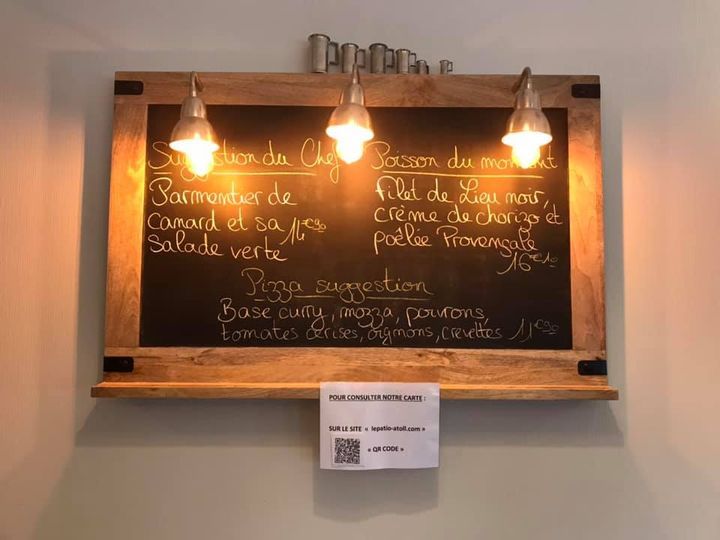 Suggestion du Chef
Parmentier de
canard et sa
salade verte 14€90
Poisson du moment
filet de Lieu noir,
crème de chorizo et
poêlée Provençale
16€10
Pizza suggestion
Base curry, mozza, poivrons,
tomates cerises, oignons, crevettes 11€90
POUR CONSULTER NOTRE CARTE :
SUR LE SITE « lepatio-atoll.com »
« QR CODE »